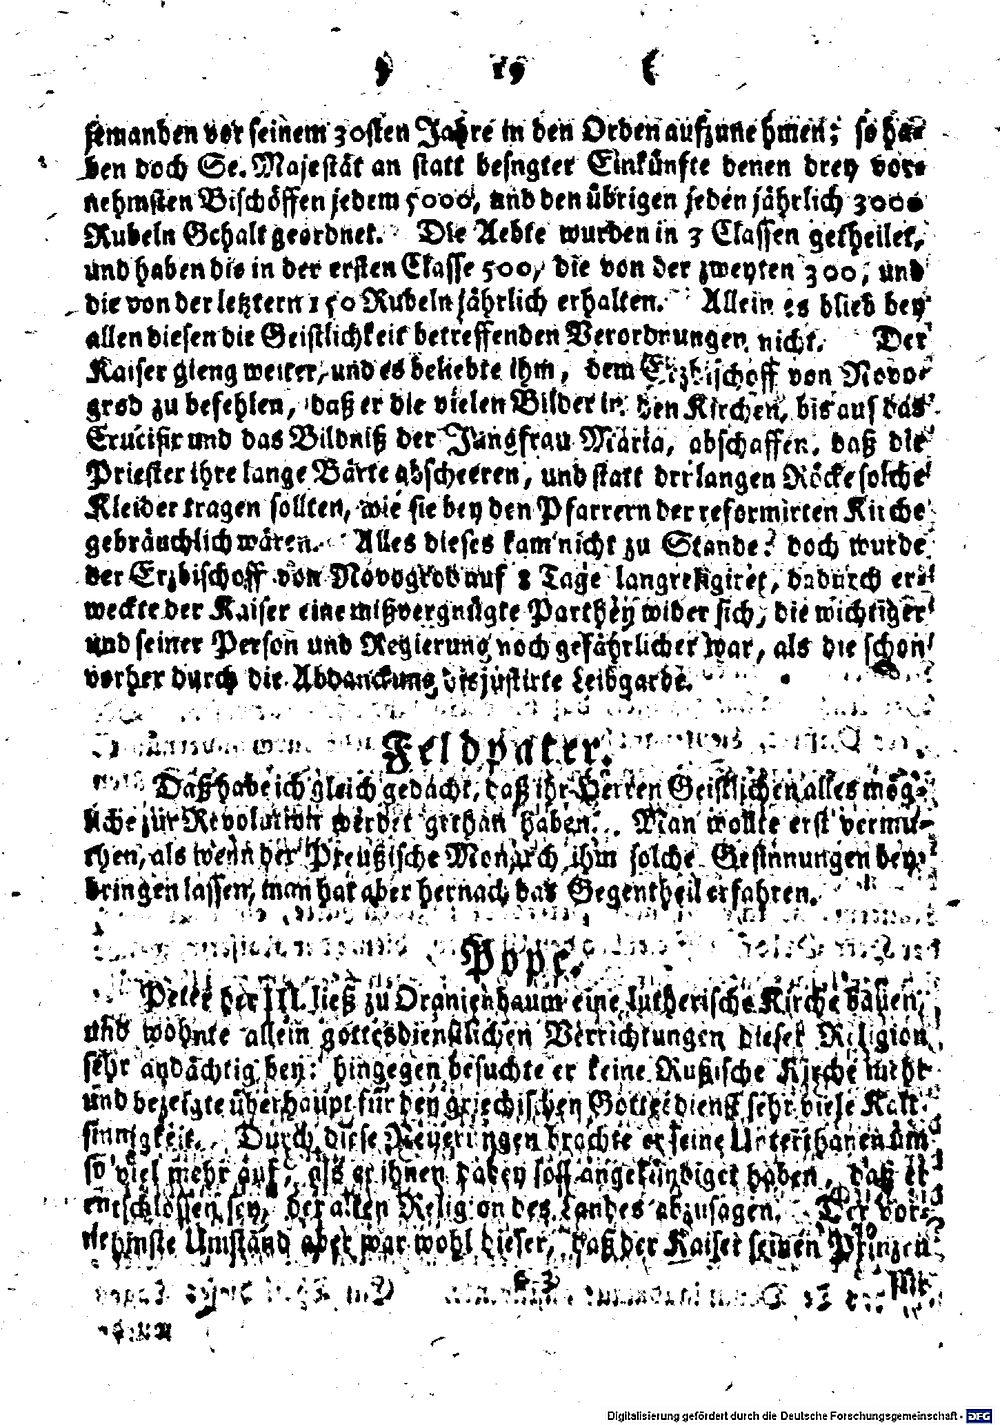 ) 19 (
jemanden vor seinem 30sten Jahre in den Orden aufzunehmen; so ha-
ben doch Se. Majestät an statt besagter Einkünfte denen drey vor-
nehmsten Bischöffen jedem 5000, und den übrigen jeden jährlich 3000
Rubeln Gehalt geordnet. Die Aebte wurden in 3 Classen getheilet,
und haben die in der ersten Classe 500, die von der zweyten 300, und
die von der letztern 150 Rubeln jährlich erhalten. Allein es blieb bey
allen diesen die Geistlichkeit betreffenden Verordnungen nicht. Der
Kaiser gieng weiter, und es beliebte ihm, dem Erzbischoff von Novo-
grod zu befehlen, daß er die vielen Bilder in den Kirchen, bis auf das
Crucifix und das Bildniß der Jungfrau Maria, abschaffen, daß die
Priester ihre lange Bärte abscheeren, und statt der langen Röcke solche
Kleider tragen sollten, wie sie bey den Pfarrern der reformirten Kirche
gebräuchlich wären. Alles dieses kam nicht zu Stande: doch wurde
der Erzbischoff von Novogrod auf 8 Tage lang relegiret, dadurch er-
weckte der Kaiser eine mißvergnügte Parthey wider sich, die wichtiger
und seiner Person und Regierung noch gefährlicher war, als die schon
vorher durch die Abdanckung disjustirte Leibgarde.
Feldpater.
Daß habe ich gleich gedacht, daß ihr Herren Geistlichen alles mög-
liche zur Revolution werdet gethan haben. Man wollte erst vermu-
then, als wenn der Preußische Monarch ihm solche Gesinnungen bey-
bringen lassen, man hat aber hernach das Gegentheil erfahren.
Pope.
Peter der III. ließ zu Oranienbaum eine lutherische Kirche bauen,
und wohnte allein gottesdienstlichen Verrichtungen dieser Religion
sehr andächtig bey: hingegen besuchte er keine Rußische Kirche mehr
und bezeigte überhaupt für den griechischen Gottesdienst sehr viele Kalt-
sinnigkeit. Durch diese Neuerungen brachte er seine Unterthanen um
so viel mehr auf, als er ihnen dabey soll angekündiget haben, daß er
entschlossen sey, der alten Religion des Landes abzusagen. Der vor-
nehmste Umstand aber war wohl dieser, daß der Kaiser seinen Prinzen
Digitalisierung gefördert durch die Deutsche Forschungsgemeinschaft - DFG